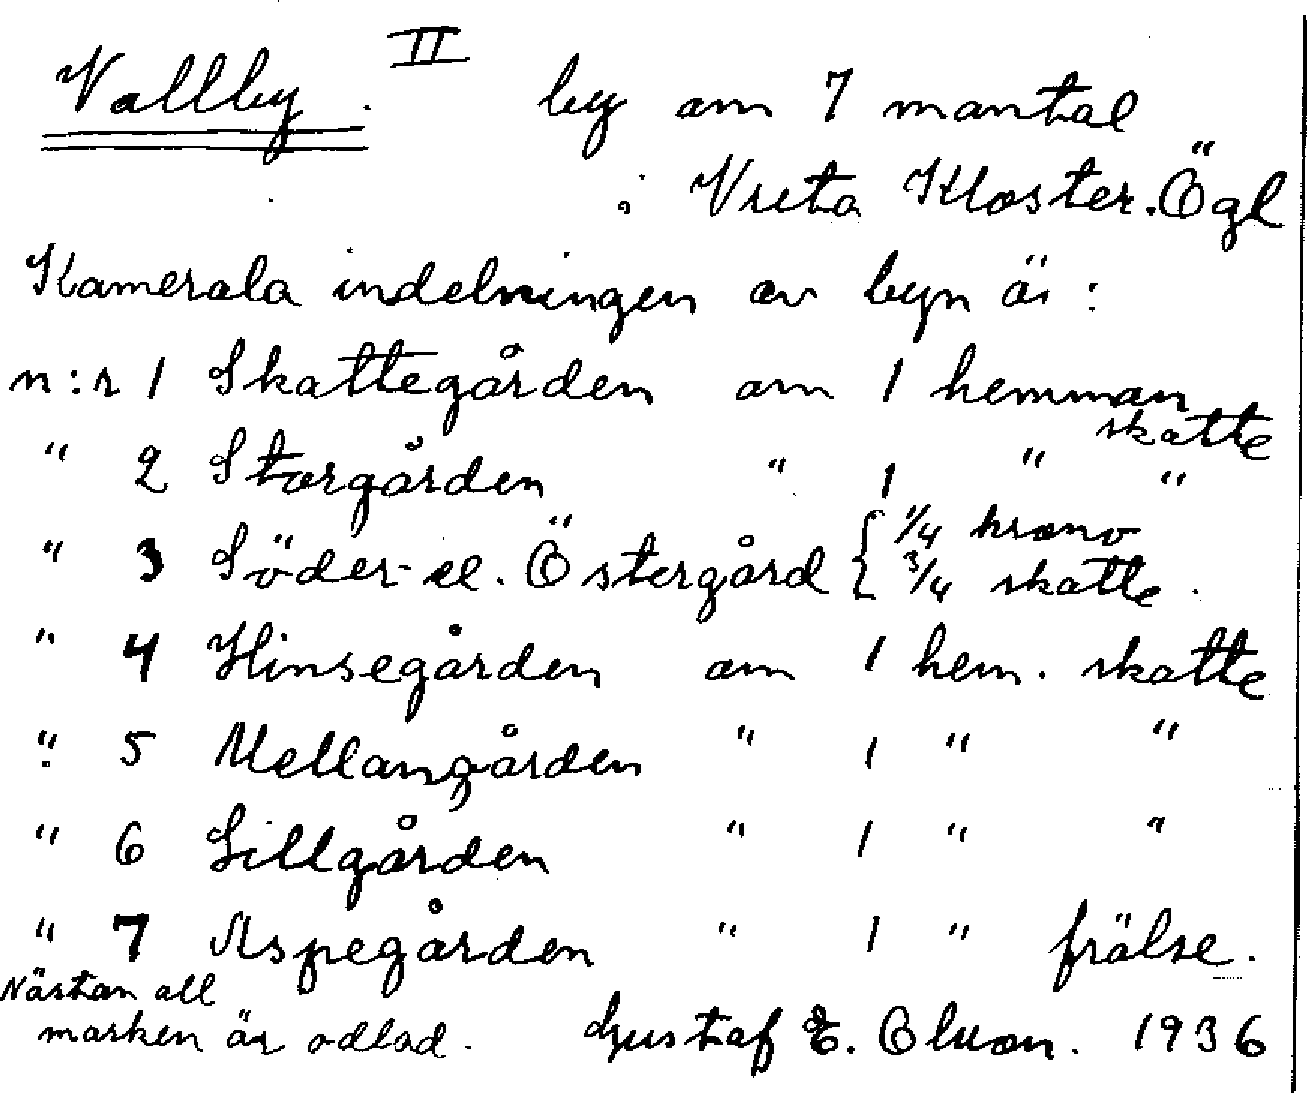 Vallby. II by om 7 mantal
i Vreta Kloster. Ögl
Kamerala indelningen av byn är:
n:r 1 Skattegården om 1 hemman skatte
" 2 Storgården " 1 " "
" 3 Söder- el. Östergård { 1/4 krono
3/4 skatte.
" 4 Hinsegården om 1 hem. skatte
" 5 Mellangården " 1 " "
" 6 Lillgården " 1 " "
" 7 Aspegården " 1 " frälse.
Nästan all
marken är odlad. Gustaf E. 1936